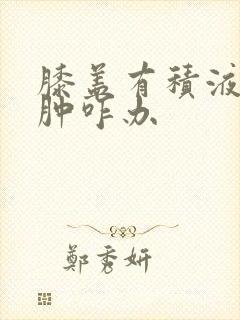 膝盖有積液
肿咋办
鄭秀妍